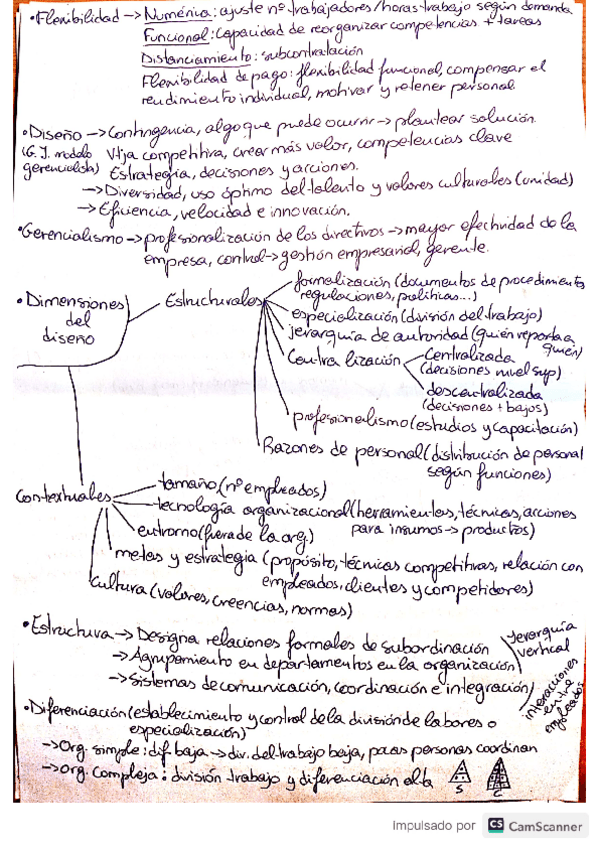 •Flexibilidad → Numérica: ajuste nº trabajadores/horas trabajo según demanda
Funcional: capacidad de reorganizar competencias + tareas
Distanciamiento: subcontratación
Flexibilidad de pago: flexibilidad funcional, compensar el
rendimiento individual, motivar y retener personal
•Diseño → Contingencia, algo que puede ocurrir → plantear solución.
(G. J. modelo gerencialista)
Vtja competitiva, crear más valor, competencias clave
Estrategia, decisiones y acciones.
→ Diversidad, uso óptimo del talento y valores culturales (unidad)
→ Eficiencia, velocidad e innovación.
•Gerencialismo → profesionalización de los directivos → mayor efectividad de la
empresa, control → gestión empresarial, gerente.
•Dimensiones
del
diseño
Estructurales
formalización (documentos de procedimientos
regulaciones, políticas...)
especialización (división del trabajo)
jerarquía de autoridad (quién reporta a
quién)
Centralización
Centralizada
(decisiones nivel sup)
descentralizada
(decisiones + bajos)
profesionalismo (estudios y capacitación)
Razones de personal (distribución de personal
según funciones)
Contextuales
tamaño (nº empleados)
tecnología organizacional (herramientas, técnicas, acciones
para insumos → productos)
entorno (fuera de la org.)
metas y estrategia (propósito, técnicas competitivas, relación con
empleados, clientes y competidores)
Cultura (valores, creencias, normas)
•Estructura → Designa relaciones formales de subordinación
→ Agrupamiento en departamentos en la organización
Jerarquía
vertical
→ Sistemas de comunicación, coordinación e integración
interacciones
entre
empleados
•Diferenciación (establecimiento y control de la división de labores o
especialización)
→ Org. simple: dif baja → div. del trabajo baja, pocas personas coordinan
→ Org. compleja: división trabajo y diferenciación alta
S C
Impulsado por CS CamScanner